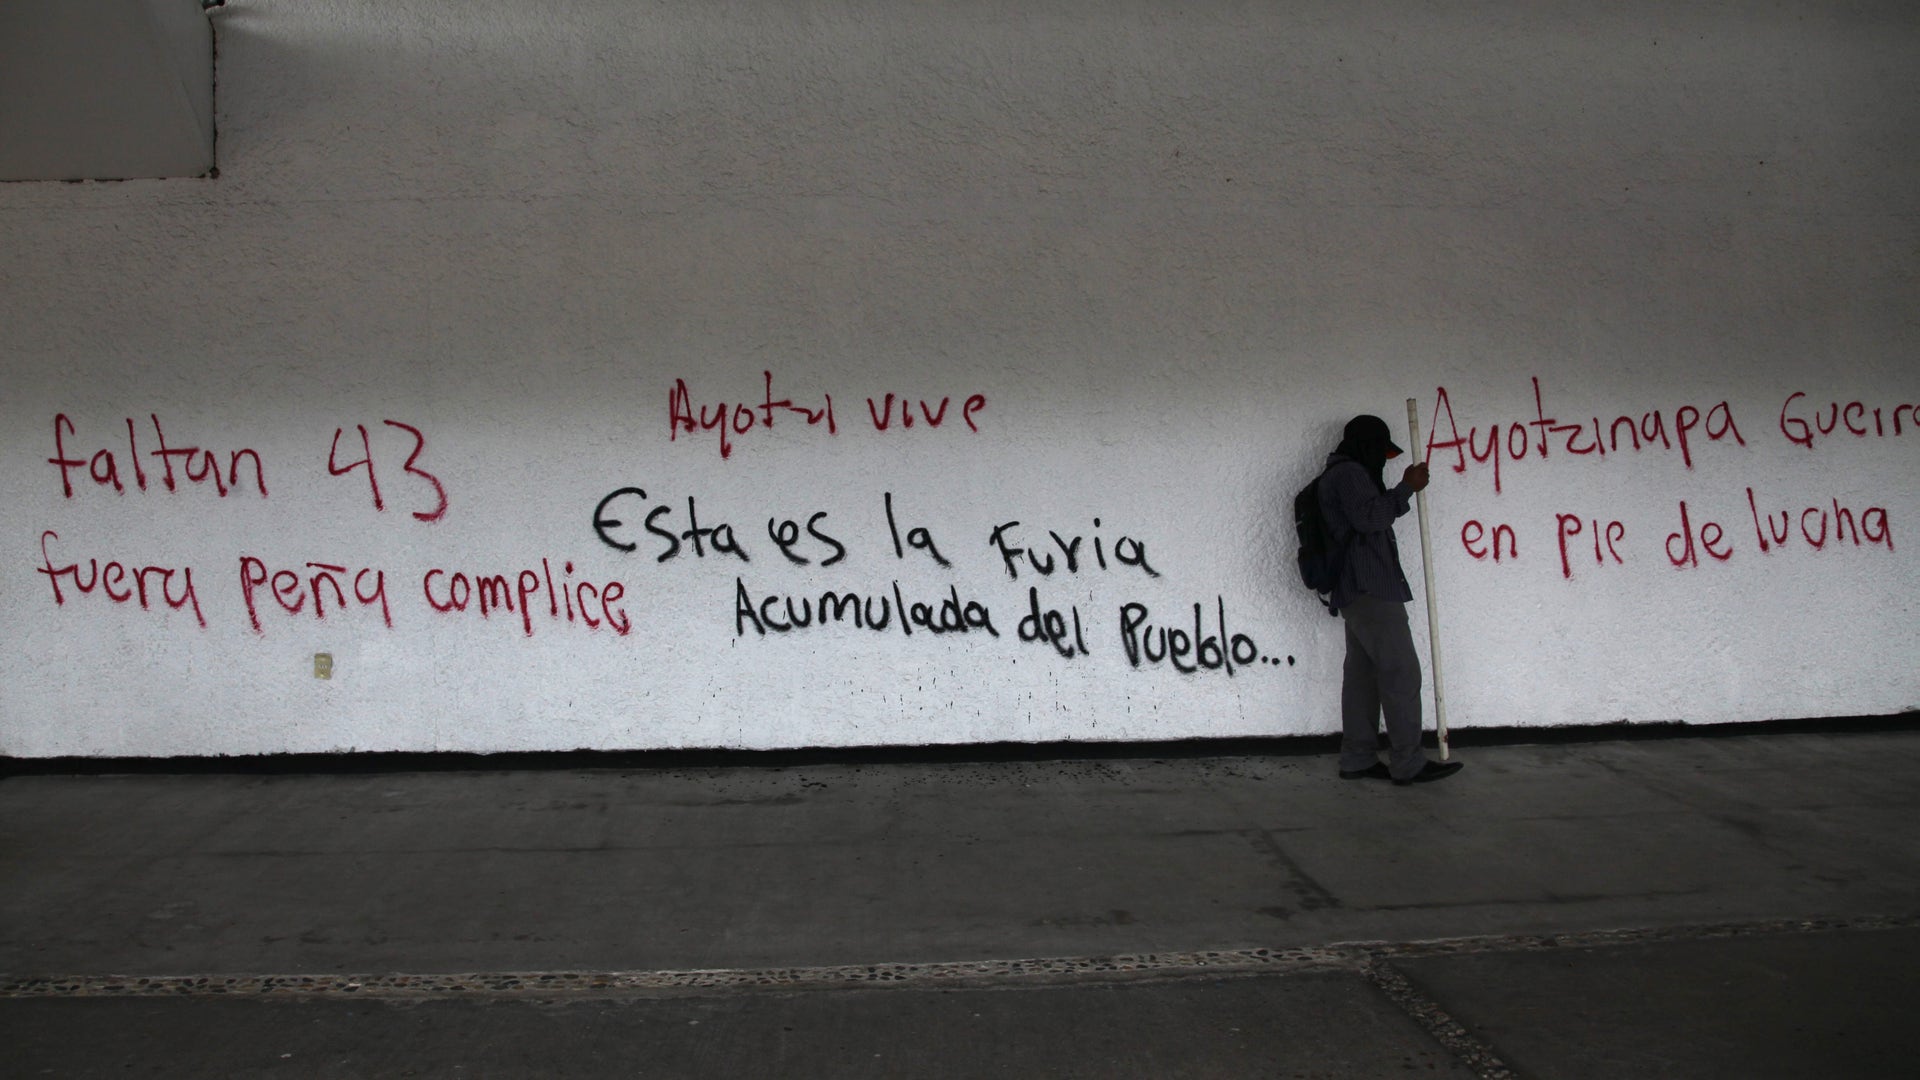 faltan 43
fuera peña complice
Ayotzi vive
Esta es la Furia
Acumulada del Pueblo...
Ayotzinapa Guerr
en pie de lucha